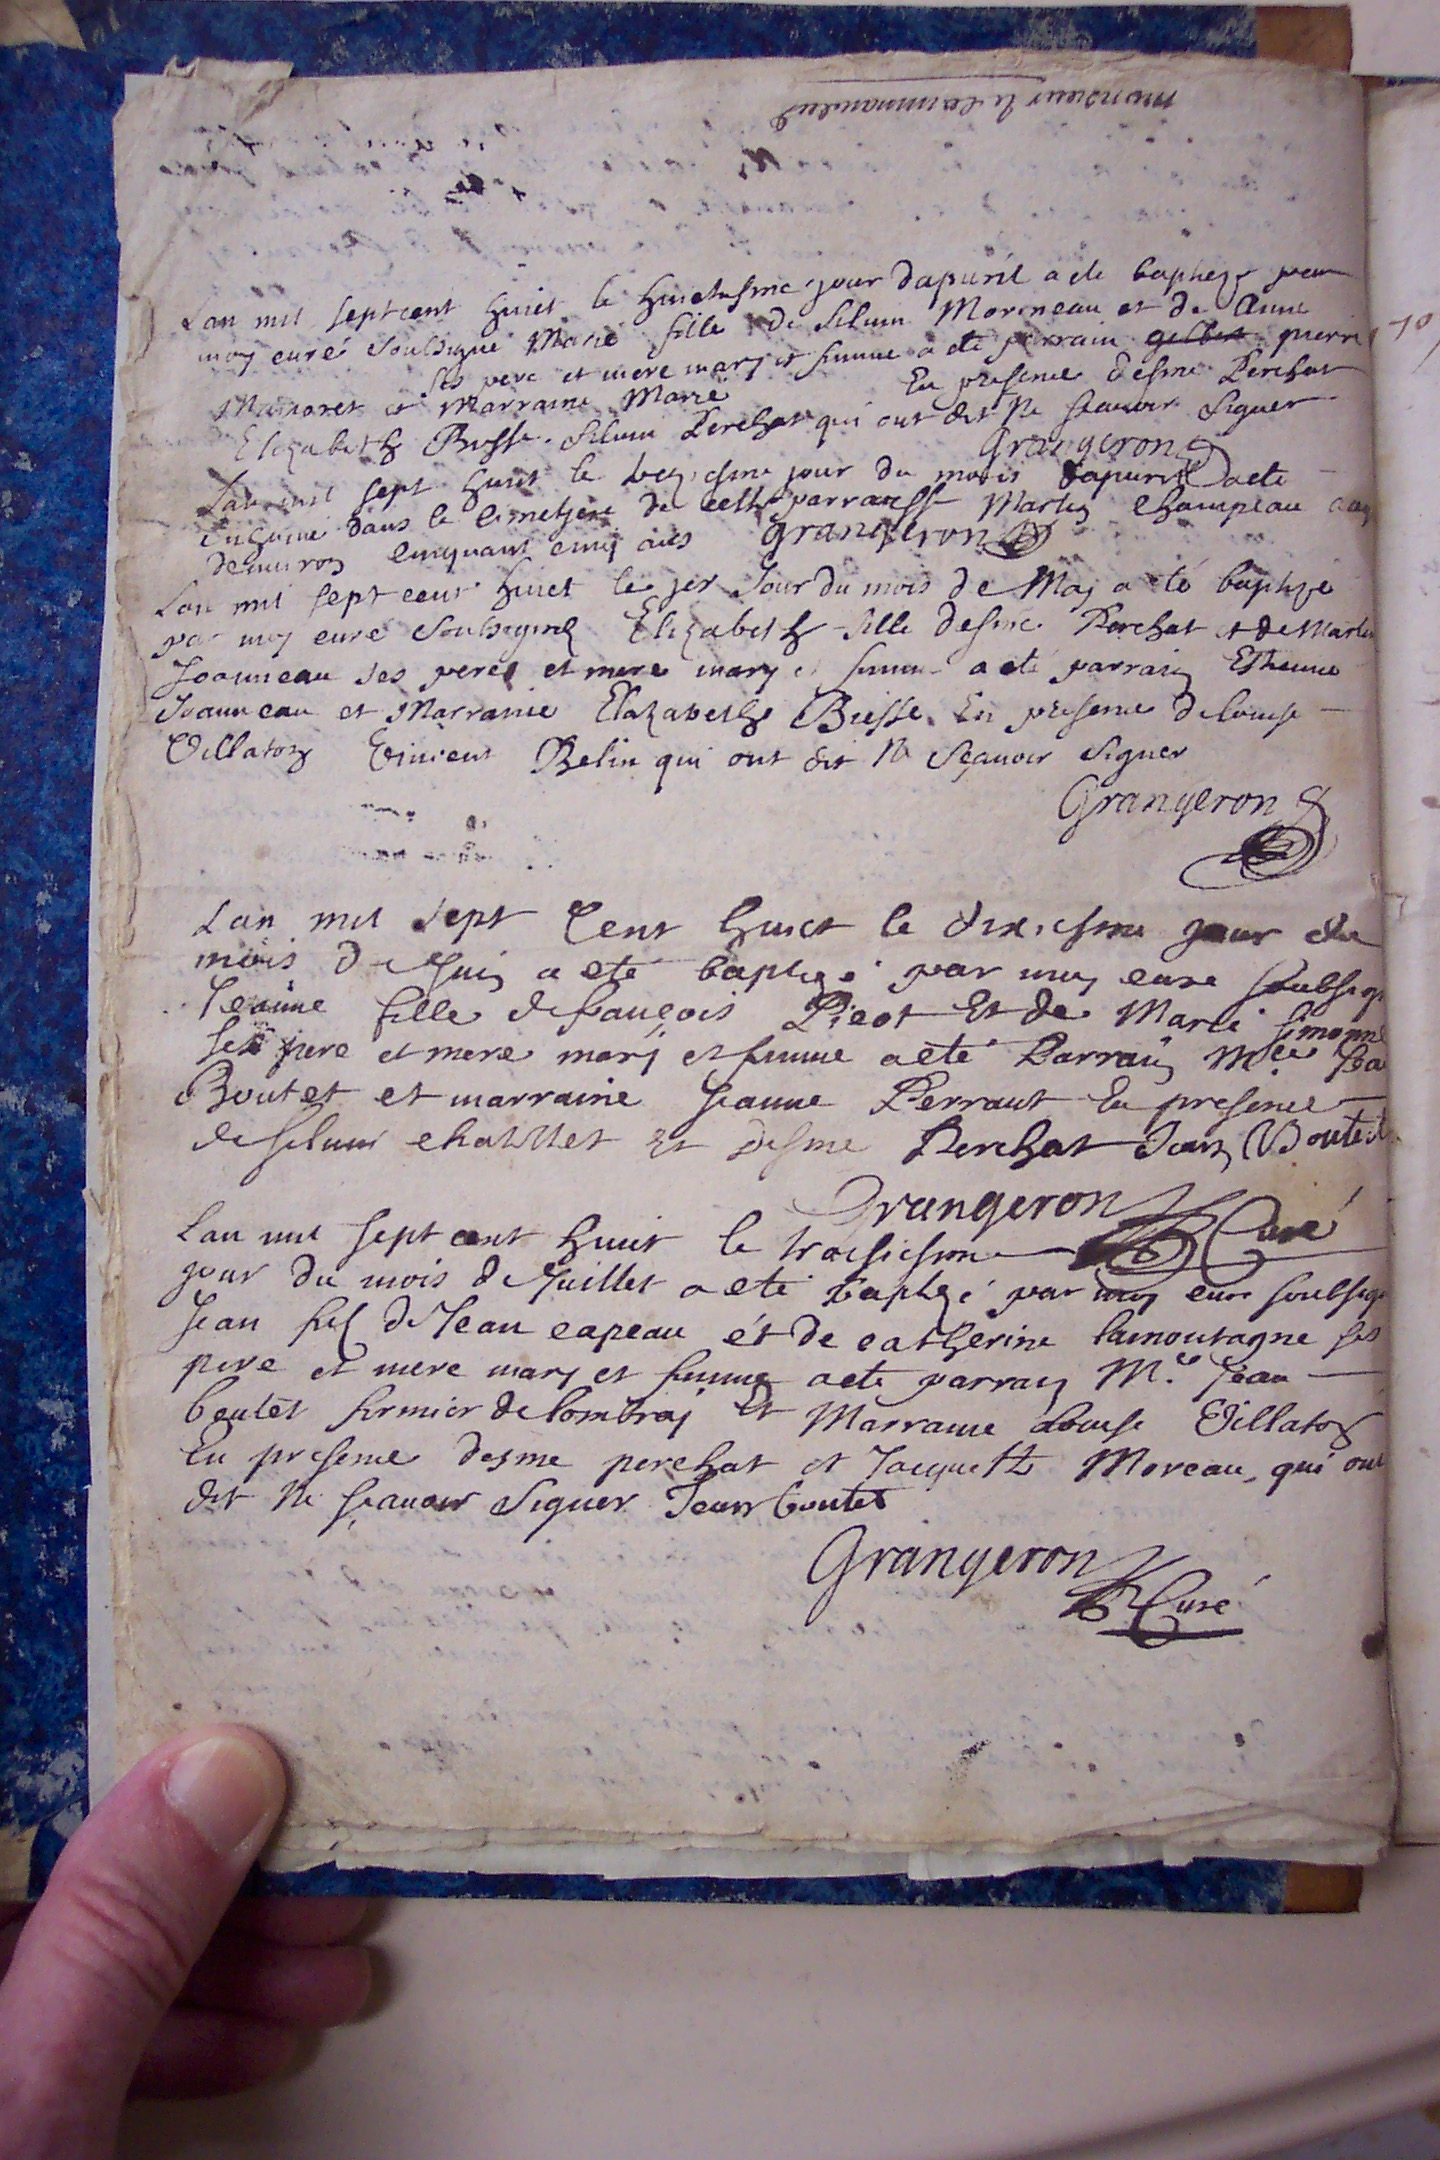 monsieur le commandeur
Lan mil sept cent huict le huictiesme jour dapuril a ete baptezé par
moy curé soubsigné Marie fille de Siluin Morineau et de Anne
ses pere et mere mary et femme a ete parrain gilbert pierre
et Marraine Marie En presence desme Perchat
Elizabeth Biesse. Siluin Perchat qui ont dit Ne scauoir Signer
Grangeron
Lan mil sept huict le jour du mois dapuril a ete
Inhumé dans le cimetiere de cette parroisse Martin Champeau
denuiron cinquant cinq ans Grangeron
Lan mil sept cent huict le jer Jour du mois de May a eté baptizé
par moy curé soubsigné Elizabeth fille desme Perchat et de Marie
Joanneau ses peres et mere mary et femme a eté parrain Ethienne
Joanneau et Marraine Elizabethe Biesse. En presence de louise
Villaton Vincent Belin qui ont dit Ne Sçauoir Signer
Grangeron
Lan mil sept Cent huict le dixiesme jour du
mois de Juin a eté baptizé par moy curé soubsigné
Jeanne fille de francois Picot Et de Marie Simonne
ses pere et mere mary et femme a eté Parrain Mre Jea
Boutet et marraine Jeanne Perraut En presence
de Siluin chaillet Et Desme Perchat Jean Boutet
Grangeron Curé
Lan mil sept cent huict le troisiesme
jour du mois de Juillet a eté baptizé par moy curé soubsigné
Jean fils de Jean capeau ét de catherine lamontagne ses
pere et mere mary et femme a ete parrain Me. Jean
boutet fermier de lombray Et Marraine Louise Villaton
En presence desme perchat et Jacquette Moreau, qui ont
dit Ne scauoir Signer Jean boutet
Grangeron
Curé